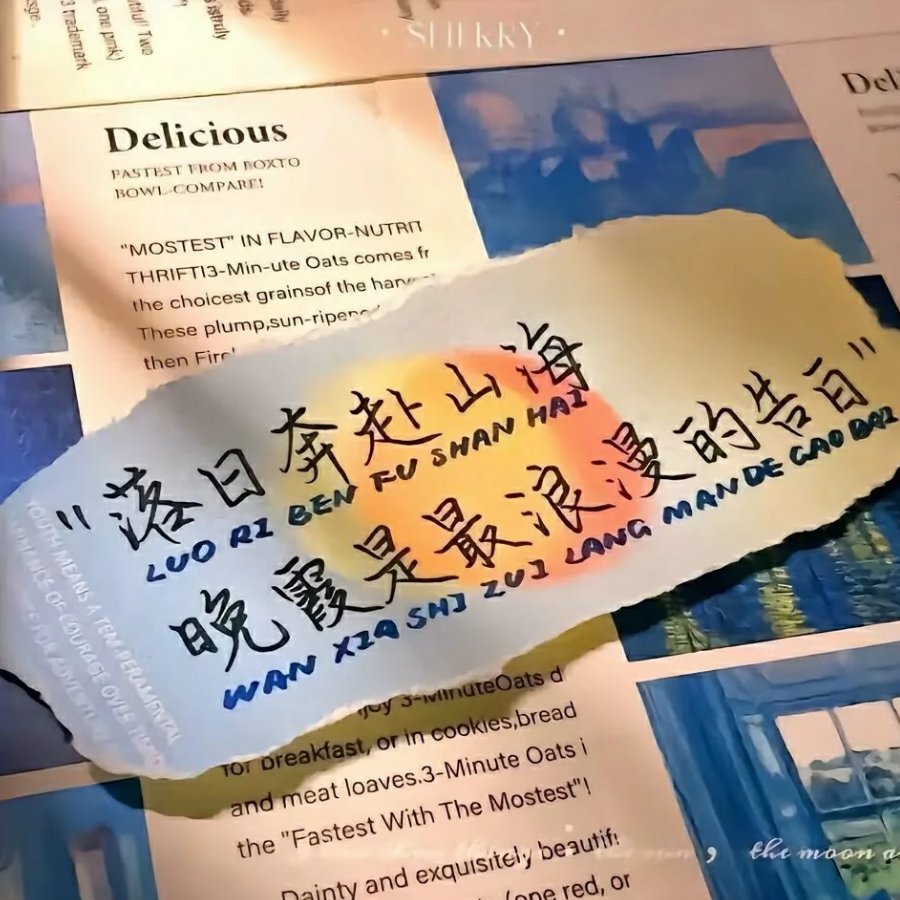 · SHERRY ·
3 trademark
one pink)
Two
Delicious
FASTEST FROM BOXTO
BOWL-COMPARE!
"MOSTEST" IN FLAVOR-NUTRIT
THRIFTI3-Min-ute Oats comes fr
the choicest grainsof the harv
These plump,sun-ripene
then Fire
"落日奔赴山海
LUO RI BEN FU SHAN HAI
晚霞是最浪漫的告白"
WAN XIA SHI ZUI LANG MAN DE GAO BAI
YOUTH MEANS A TEMPERAMENTAL
COURAGE OVER
FOR
njoy 3-MinuteOats d
for breakfast, or in cookies,bread
and meat loaves.3-Minute Oats i
the "Fastest With The Mostest"!
Dainty and exquisitely beautif
(one red, or
the sun, the moon a